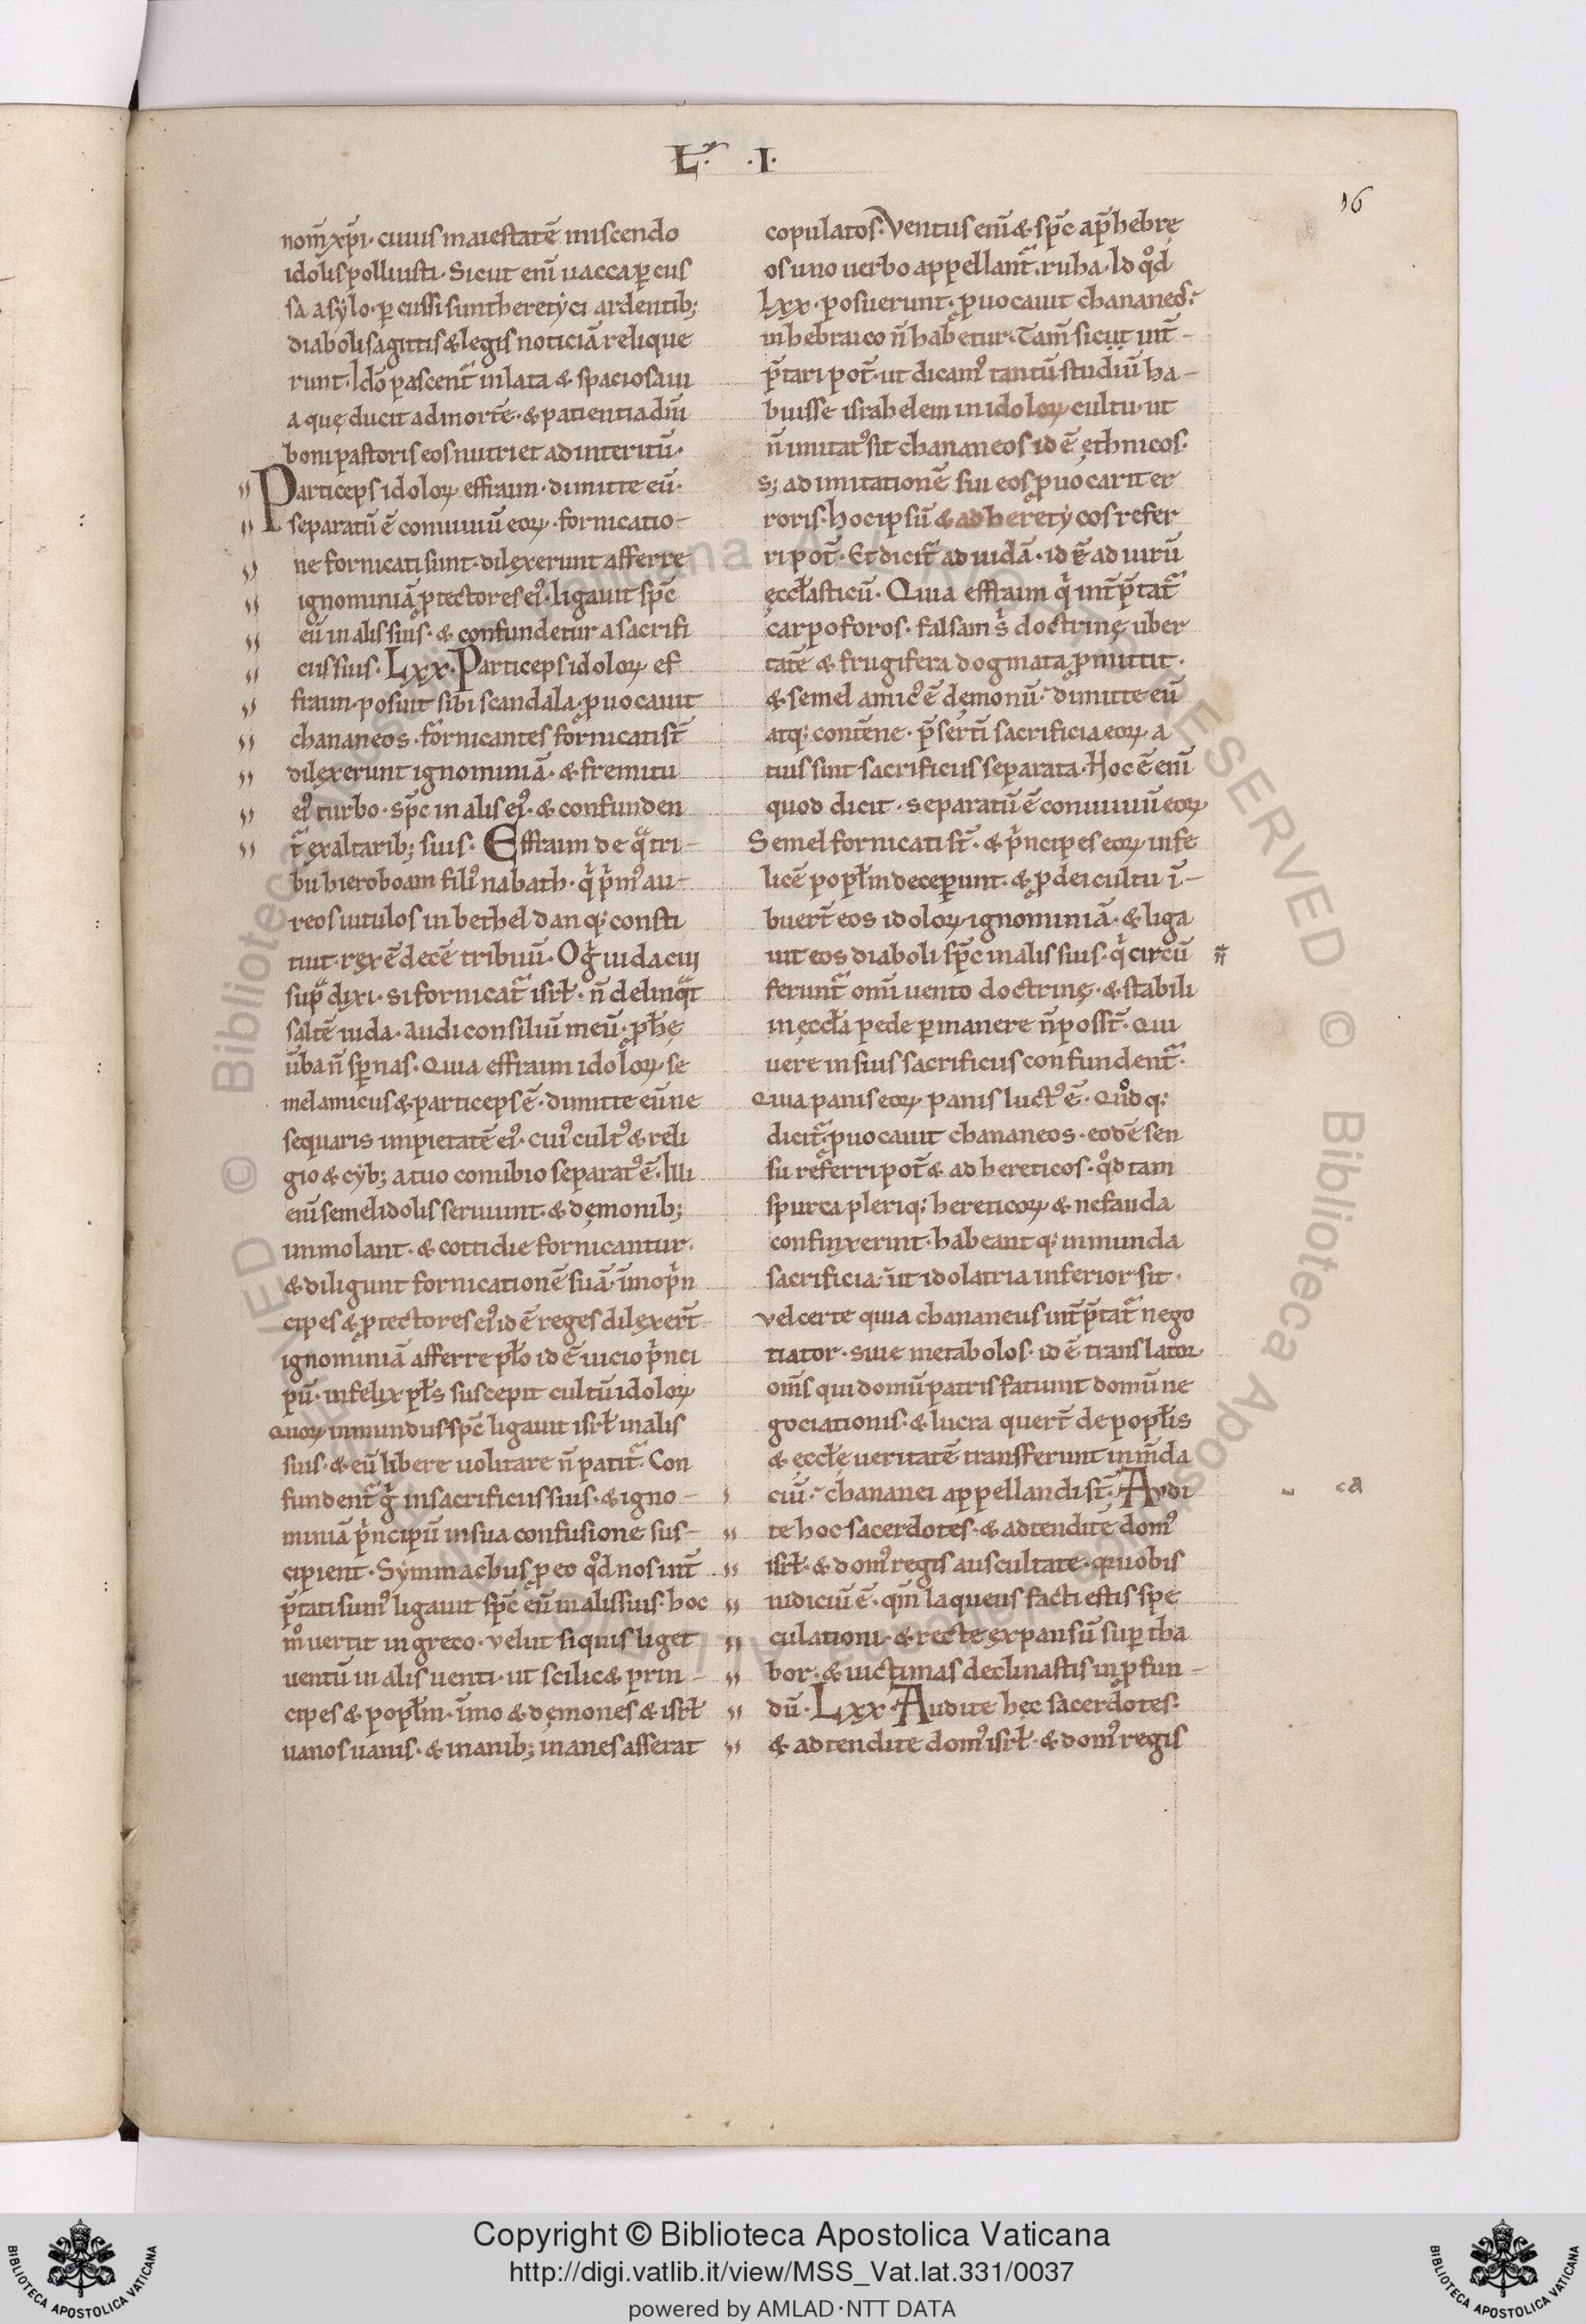 L. .I.
16
nom̄ xp̄i· cuius maiestatē miscendo
idolis polluisti· Sicut enī uacca ꝑcus
sa asylo· ꝑcussi sunt heretyci ardentib;
diaboli sagittis & legis noticiā relique
runt· Idō pascent̄ in lata & spaciosa ui
a quę ducit ad mortē· & patientia dn̄i
boni pastoris eos nutriet ad interitū·
Particeps idoloꝝ effraim· dimitte eū·
separatū ē conuiuiū eoꝝ· fornicatio-
ne fornicati sunt· dilexerunt afferre
ignominiā ꝓtectores ei᾽· ligauit sp̄c
eū in alis suis· & confundetur a sacrifi
ciis suis· Lxx· Particeps idoloꝝ ef
fraim· posuit sibi scandala· ꝓuocauit
chananeos· fornicantes fornicati st̄
dilexerunt ignominiā· & fremitu
ei᾽ turbo· sp̄c in alis ei᾽· & confunden
t̄ ex altarib; suis· Effraim de qͣ tri-
bu hieroboam fili᾽ nabath· qⁱ pⁱm᾽ au-
reos uitulos in bethel dan q; consti
tuit· rex ē decē tribuū· O gͦ iuda cui
supͣ dixi· si fornicat̄ isrł· n̄ delinqͣt
saltē iuda· audi consiliū meū· ꝓphę
ūba n̄ sꝑnas· Quia effraim idoloꝝ se
mel amicus & particeps ē· dimitte eū ne
sequaris impietatē ei᾽· cui᾽ cult᾽ & reli
gio & cyb; a tuo conubio separat᾽ ē· Illi
enī semel idolis seruiunt· & dęmonib;
immolant· & cottidie fornicantur·
& diligunt fornicationē suā· īmo pⁱn
cipes & ꝓtectores ei᾽ id ē reges dilexert̄
ignominiā afferre pło id ē uicio pⁱnci
pū· infelix płs suscepit cultū idoloꝝ
Quoꝝ inmundus sp̄c ligauit isrł in alis
suis· & eū libere uolitare n̄ patit̄· Con
fundent̄ gͦ in sacrificiis suis· & igno-
miniā pⁱncipū in sua confusione sus-
cipient· Symmachus ꝓ eo qͦd nos int̄
p̄tati sum᾽ ligauit sp̄c eū in alis suis· hoc
mͦ uertit in greco· velut si quis liget
uentū in alis uenti· ut scilic& prin-
cipes & popłm· īmo & dęmones & isrł
uanos uanis· & inanib; inanes asserat
copulatos· Ventus enī & sp̄c ap̄ hebrę
os uno uerbo appellant̄· ruha· Id qͦd
Lxx· posuerunt· ꝓuocauit chananeos·
in hebraico n̄ habetur· Tam̄ sicut int̄-
p̄tari pot̄· ut dicam᾽ tantū studiū ha-
buisse israhelem in idoloꝝ cultu· ut
n̄ imitat᾽ sit chananeos id ē ęthnicos·
s; ad imitationē sui eos ꝓuocarit er
roris· hoc ipsū & ad heretycos refer
ri pot̄· Et dicit̄ ad iudā· id ē ad uirū
ęccłasticū· Quia effraim qⁱ int̄p̄tat̄
carpoforos· falsam s̄ doctrinę uber
tatē & frugifera dogmata ꝓmittit·
& semel amic᾽ ē dęmonū· dimitte eū
atq; contēne· p̄sertī sacrificia eoꝝ· a
tuis sint sacrificiis separata· Hoc ē enī
quod dicit· separatū ē conuiuiū eoꝝ
Semel fornicati st̄· & pⁱncipes eoꝝ infe
licē popłm deceꝑunt· & ꝓ dei cultu ī-
buert̄ eos idoloꝝ ignominiā· & liga
uit eos diaboli sp̄c in alis suis· qⁱ circū
ferunt̄ omī uento doctrinę· & stabili
in ęccła pede ꝑmanere n̄ posst̄· Qui
uere in suis sacrificiis confundent̄·
Quia panis eoꝝ panis luct᾽ ē· Qͦd q;
dicit̄· ꝓuocauit chananeos· eodē sen
su referri pot̄ & ad hereticos· qͦd tam
spurca pleriq; hereticoꝝ & nefanda
confinxerint· habeant q; inmunda
sacrificia· ut idolatria inferior sit·
Vel certe quia chananeus int̄p̄tat̄ nego
tiator· siue metabolos· id ē translator
om̄s qui domū patris fatiunt domū ne
gociationis· & lucra quert̄ de popłis
& ęccłę ueritatē transferunt in m̄da
ciū· chananei appellandi st̄· Audi
te hoc sacerdotes· & adtendite dom᾽
isrł· & dom᾽ regis auscultate· q; uobis
iudiciū ē· qm̄ laqueus facti estis spe
culationi· & recte expansū suꝑ tha
bor· & uictimas declinastis in ꝓfun-
dū· Lxx· Audite hęc sacerdotes·
& adtendite dom᾽ isrł· & dom᾽ regis
ca
Copyright © Biblioteca Apostolica Vaticana
http://digi.vatlib.it/view/MSS_Vat.lat.331/0037
powered by AMLAD·NTT DATA
BIBLIOTECA APOSTOLICA VATICANA
BIBLIOTECA APOSTOLICA VATICANA